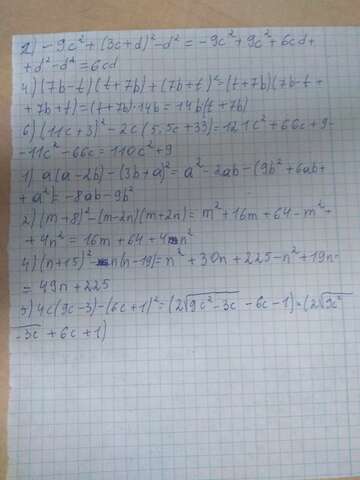 2) -9c² + (3c+d)² - d² = -9c² + 9c² + 6cd +
+ d² - d² = 6cd
4) (7b-t)(t+7b) + (7b+t)² = (t+7b)(7b-t+
+7b+t) = (t+7b)·14b = 14b(t+7b)
6) (11c+3)² - 2c(5,5c+33) = 121c² + 66c + 9 -
- 11c² - 66c = 110c² + 9
1) a(a-2b) - (3b+a)² = a² - 2ab - (9b² + 6ab +
+ a²) = -8ab - 9b²
2) (m+8)² - (m-2n)(m+2n) = m² + 16m + 64 - m² +
+ 4n² = 16m + 64 + 4n²
4) (n+15)² - n(n-19) = n² + 30n + 225 - n² + 19n =
= 49n + 225
5) 4c(9c-3) - (6c+1)² = (2√9c²-3c - 6c - 1)·(2√9c²
-3c + 6c + 1)